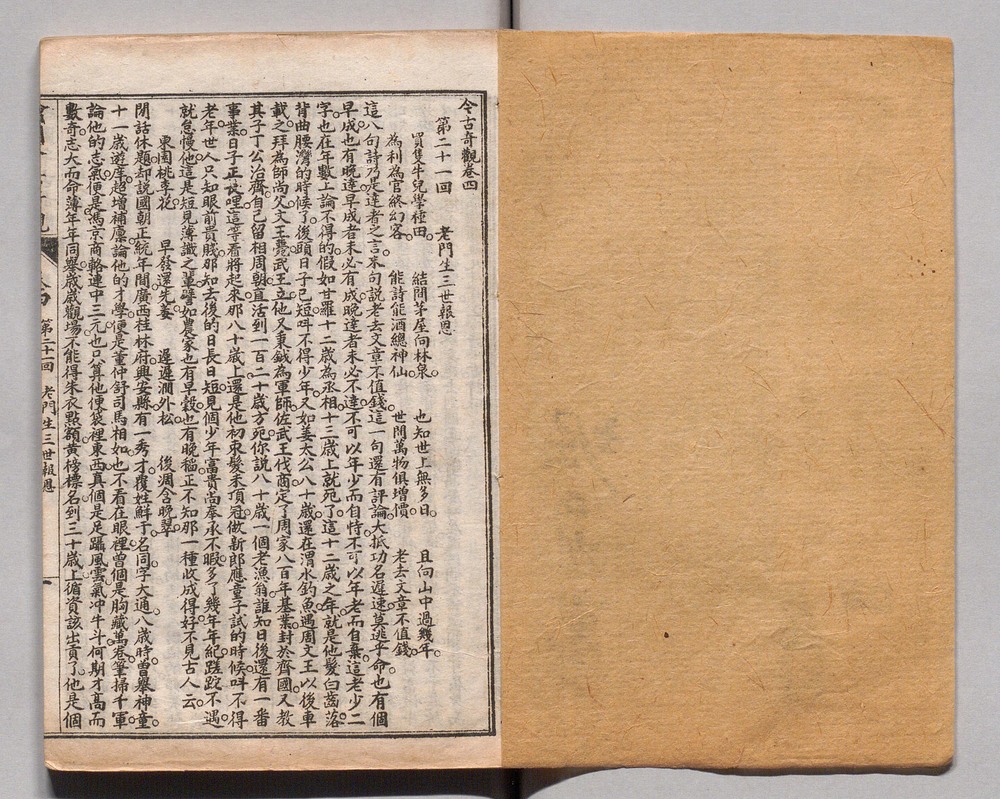 今古奇觀卷四
第二十一回　老門生三世報恩
買隻牛兒學種田。　結間茅屋向林泉。　也知世上無多日。　且向山中過幾年。
為利為官終幻客。　能詩能酒總神仙。　世間萬物俱增價。　老去文章不值錢。
這八句詩乃是達者之言末句說老去文章不值錢這一句還有評論大抵功名遲速莫逃乎命也有個
早成也有晚達早成者未必有成晚達者未必不達不可以年少而自恃不可以年老而自棄這老少二
字也在年數上論不得的假如甘羅十二歲為丞相十三歲上就死了這十二歲之年就是他髮白齒落
背曲腰灣的時候了後頭日子已短呌不得少年又如姜太公八十歲還在渭水釣魚遇周文王以後車
載之拜為師尚父文王薨武王立他又秉鉞為軍師佐武王伐商定了周家八百年基業封於齊國又教
其子丁公治齊自己留相周朝直活到一百二十歲方死你說八十歲一個老漁翁誰知日後還有一番
事業日子正長哩這等看將起來那八十歲上還是他初束髮未頂冠做新郎應童子試的時候呌不得
老年世人只知眼前貴賤那知去後的日長日短見個少年富貴尚奉承不暇多了幾年年紀蹉跎不遇
就怠慢他這是短見薄識之輩譬如農家也有早穀也有晚稻正不知那一種收成得好不見古人云
東園桃李花　早發還先萎　遲遲澗外松　後凋含晚翠
閒話休題却說國朝正統年間廣西桂林府興安縣有一秀才覆姓鮮于名同字大通八歲時曾舉神童
十一歲遊庠超增補廩論他的才學便是董仲舒司馬相如也不看在眼裡曾個是胸藏萬卷筆掃千軍
論他的志氣便是馮京商輅連中三元也只算他便袋裡東西真個是足躡風雲氣冲牛斗何期才高而
數奇志大而命薄年年同舉歲歲觀場不能得朱衣點額黃榜標名到三十歲上循資該出貢了他是個
第二十一回　老門生三世報恩